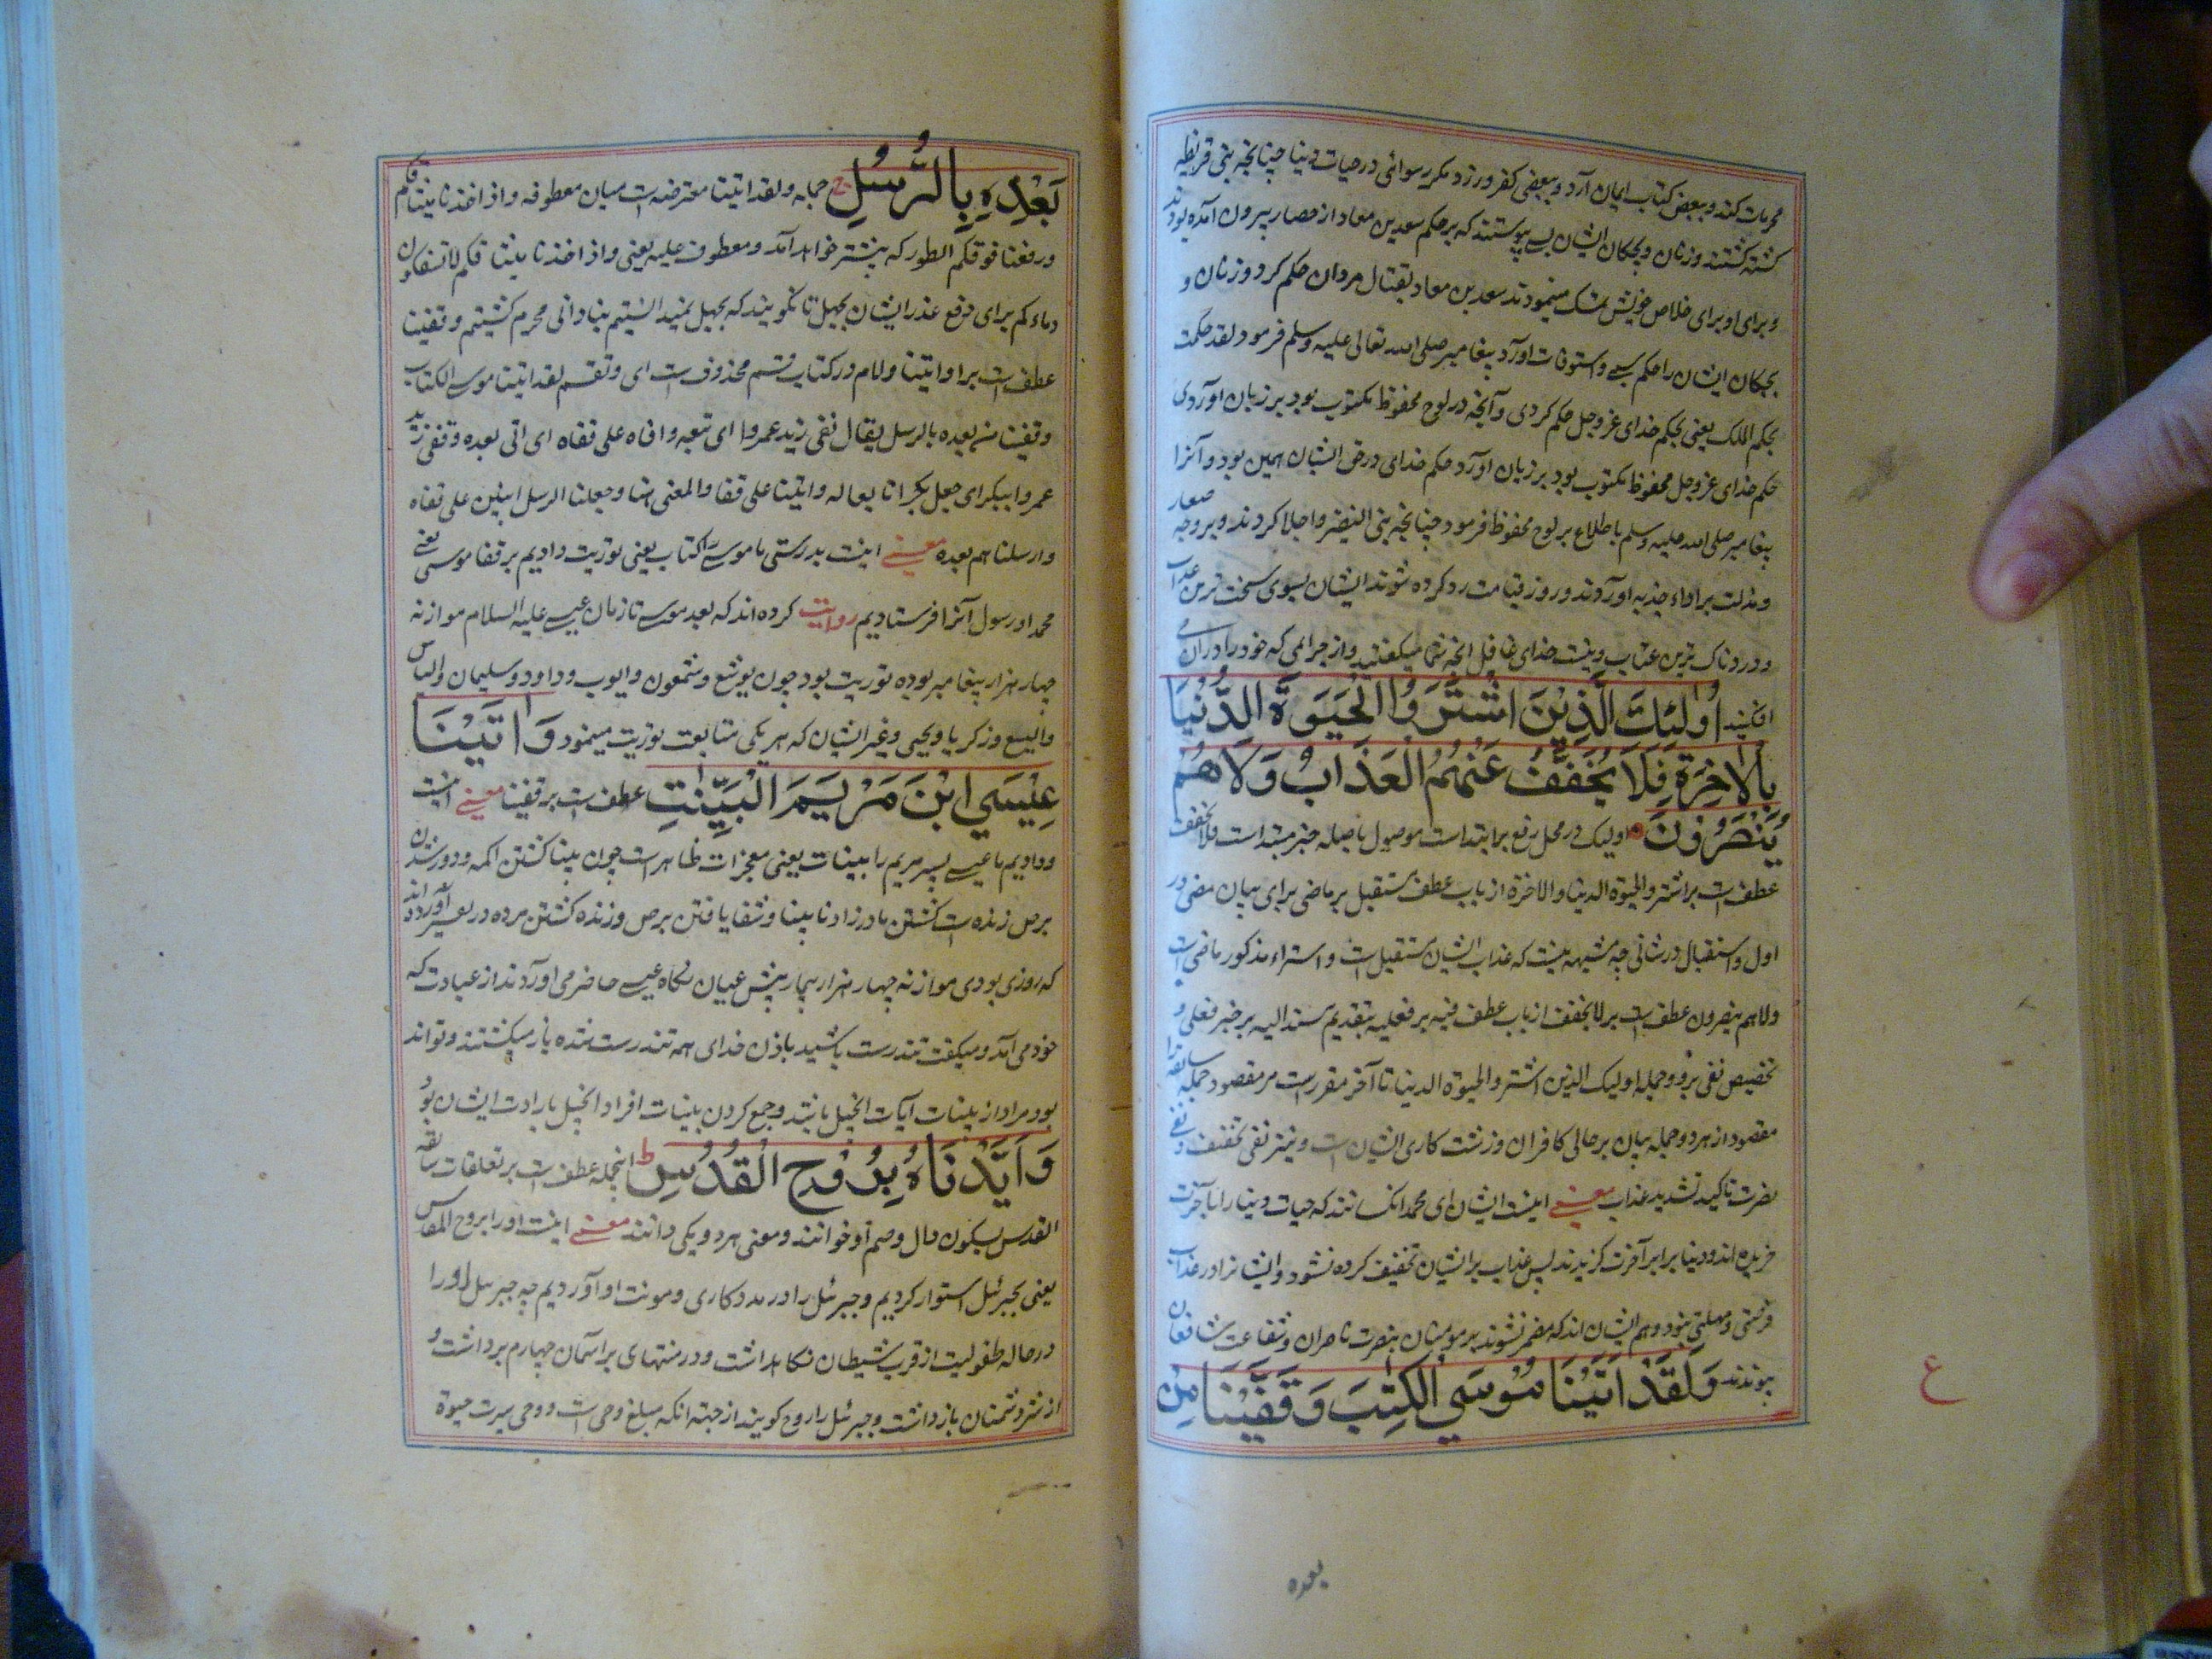 محرمات کند و ببعض کتاب ایمان آرد و ببعضی کفر ورزد مگر رسوائی در حیات دنیا چنانچه بنی قریظه
کشته گشتند و زنان و بچکان ایشان بسبی پیوستند که بر حکم سعد بن معاد از حصار بیرون آمده بودند
و برای او برای خلاص خویش تمسک مینمودند سعد بن معاد بقتال مردان حکم کرد و زنان و
بچکان ایشان را حکم بسبی و استرقاق آورد پیغامبر صلی الله تعالی علیه وسلم فرمود لقد حکمت
بحکم الملک یعنی بحکم خدای عز وجل حکم کردی و آنچه در لوح محفوظ مکتوب بود بر زبان آوردی
حکم خدای عز وجل محفوظ مکتوب بود بر زبان آورد حکم خدای در حق ایشان همین بود و آنرا
پیغامبر صلی الله علیه وسلم باطلاع بر لوح محفوظ فرمود چنانچه بنی النضیر را جلا کردند و بر وجه صغار
و مذلت بر اداء جزیه آوردند و روز قیامت رد کرده شوند ایشان بسوی سخت ترین عذاب
و دردناک ترین عقاب و نیست خدای غافل آنچه شما میکنید و از جرائمی که خود را در آن می
افکنید اُولٰئِکَ الَّذِیْنَ اشْتَرَوُا الْحَیٰوةَ الدُّنْیَا
بِالْاٰخِرَةِ فَلَا یُخَفَّفُ عَنْهُمُ الْعَذَابُ وَلَا هُمْ
یُنْصَرُوْنَ اولیک در محل رفع بر ابتداست موصول با صله خبر مبتداست فلا یخفف
عطف است بر اشتروا الحیوة الدنیا والاخرة از باب عطف مستقبل بر ماضی برای بیان مضی در
اول و استقبال در ثانی چه شبهه نیست که عذاب ایشان مستقبل است و اشتراء مذکور ماضی است
ولا هم ینصرون عطف است بر لا یخفف از باب عطف فیه بر فعلیه بتقدیم مسند الیه بر خبر فعلی و
تخصیص نفی برو و جمله اولیک الذین اشتروا الحیوة الدنیا تا آخر مقررست مر مقصود جمله سابقه را
مقصود از هر دو جمله بیان بر حالی کافران و زشت کاری ایشان است و نیز نفی تخفیف و نفی
نصرت تاکید تشدید عذاب معنی اینست ایشان ای محمد انکسانند که حیات دنیا را با آخرت
خریده اند و دنیا برابر آخرت گزیدند پس عذاب بر ایشان تخفیف کرده نشود و ایشانرا در عذاب
فرصتی و مهلتی نبود و هم ایشان اند که مضر نشوند بر مومنان بنصرت ناصران و شفاعت شافعان
پیوندند وَلَقَدْ اٰتَیْنَا مُوْسَی الْکِتٰبَ وَقَفَّیْنَا مِنْ
ع
بعده
بَعْدِهٖ بِالرُّسُلِ جمله ولقد اتینا معترضه است میان معطوفه و اذ اخذنا میثاقکم
ورفعنا فوقکم الطور که پیشتر خواهد آمد و معطوف علیه یعنی و اذ اخذنا میثاقکم لا تسفکون
دماءکم برای قطع عذر ایشان بجهل تا نگویند که بجهل نمیدانستیم بنادانی مجرم گشتیم وقفینا
عطف است بر اواتینا ولام در کتاب قسم محذوف است ای ونقسم لقد اتینا موسی الکتاب
وقفینا من بعده بالرسل یقال قفی زید عمروا ای تبعه واقاه علی قفاه ای اتی بعده وقفی زید
عمروا ببکر ای جعل بکرا تابعا له واتینا علی قفا والمعنی هنا وجعلنا الرسل آتین علی قفاه
وارسلناهم بعده معنی اینست بدرستی ما موسی را کتاب یعنی توریت دادیم بر قفا موسی یعنی
محمد او رسول آنرا فرستادیم روایت کرده اند که بعد موسی تا زمان عیسی علیه السلام موازنه
چهار هزار پیغامبر بوده توریت بود چون یوشع و شمعون و ایوب و داود و سلیمان و الیاس
و الیسع و زکریا و یحیی و غیر ایشان که هر یکی متابعت توریت مینمود وَاٰتَیْنَا
عِیْسَی ابْنَ مَرْیَمَ الْبَیِّنٰتِ عطف است بر قفینا معنی اینست
و دادیم ما عیسی پسر مریم را بینات یعنی معجزات ظاهرات چون بینا گشتن اکمه و دور شدن
برص زنده است گشتن مادرزاد نا بینا و شفا یافتن برص و زنده گشتن مرده در تفسیر آورده اند
که روزی بودی موازنه چهار هزار بیمار پیش عیان نگاه عیسی حاضر می آوردند از عبادت که
خود می آمد و میگفت تندرست باشید باذن خدای همه تندرست شده باز میگشتند و تواند
بود مراد از بینات آیات انجیل باشد و جمع کردن بینات افراد انجیل بارادت ایشان بود
وَاَیَّدْنَاهُ بِرُوْحِ الْقُدُسِ ط اینجمله عطف است بر تعلقات سابقه
القدس بسکون دال و ضم او خوانند و معنی هر دو یکی دانند معنی اینست او را بروح المقدس
یعنی بجبرئیل استوار کردیم و جبرئیل را در مددکاری و مونت او آوردیم چه جبرئیل او را
در حاله طفولیت از قرب شیطان نگاه داشت و در منتهای بر آسمان چهارم برداشت و
از شر دشمنان باز داشت و جبرئیل را روح گویند از جهته آنکه مبلغ وحی است و وحی سبب حیوة